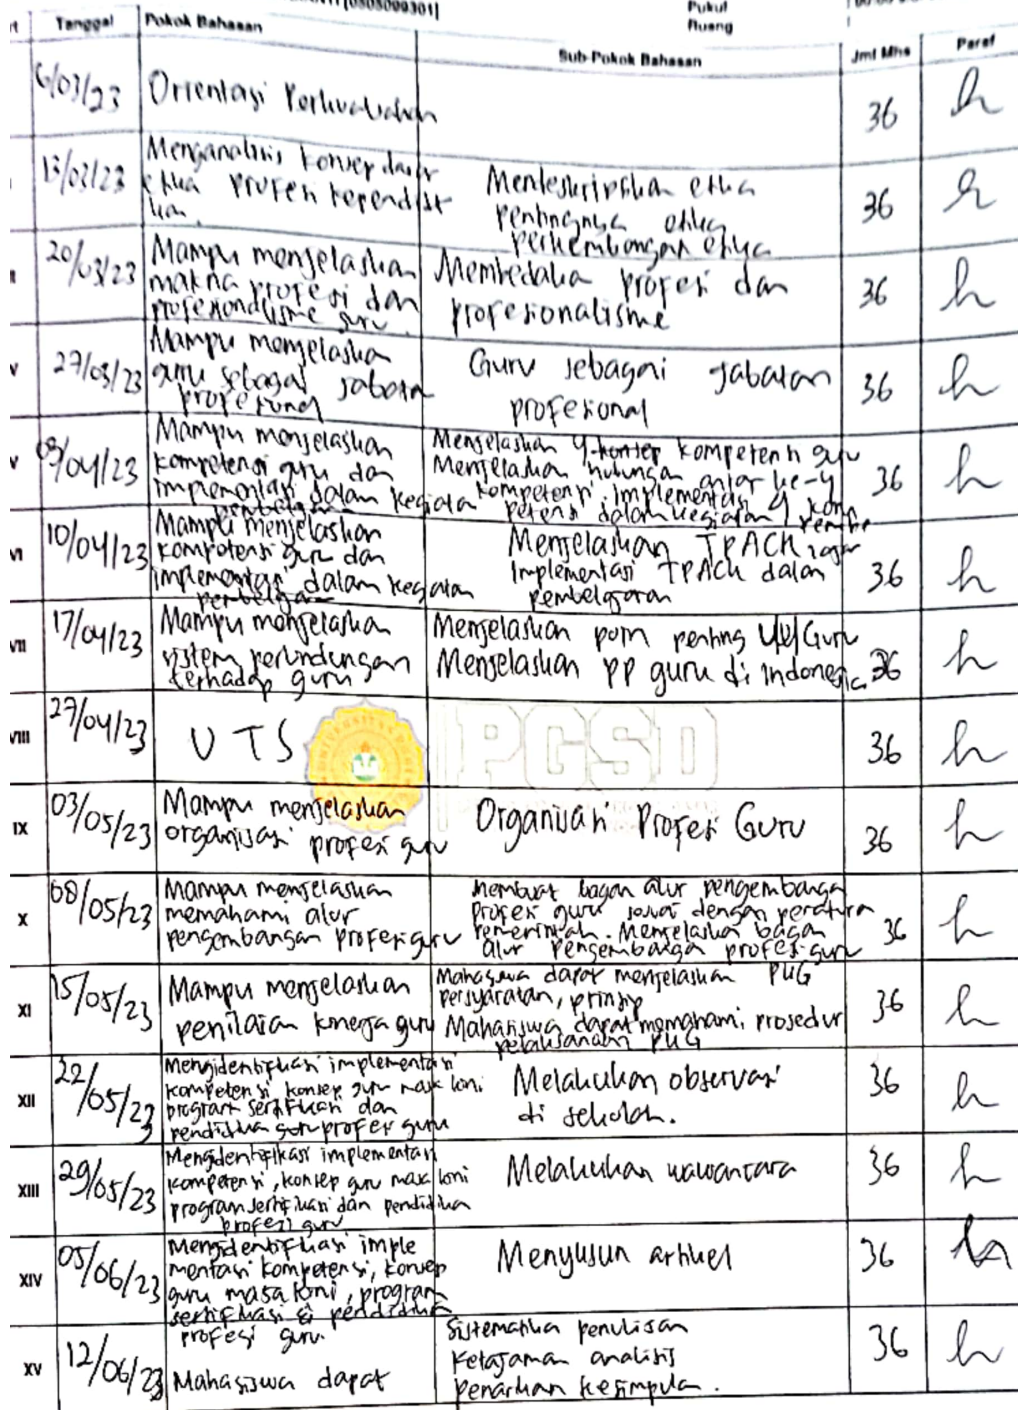 [0505099301]
Pukul
Ruang
Tanggal Pokok Bahasan Sub-Pokok Bahasan Jml Mhs Paraf
6/03/23 Orientasi Perkuliahan 36
13/03/23 Menganalisis konsep dasar
etika profesi kependidi
kan.
Mendeskripsikan etika
pentingnya etika
perkembangan etika
36
20/03/23 Mampu menjelaskan
makna profesi dan
profesionalisme guru.
Membedaka profesi dan
profesionalisme
36
V 27/03/23 Mampu menjelaska
guru sebagai jabatan
profesional
Guru sebagai jabatan
profesional
36
V 03/04/23 Mampu menjelaskan
kompetensi guru dan
implementasi dalam kegiata
Menjelaskan 4 konsep kompetensi guru
Menjelaskan hubungan antar ke-4
kompetensi. implementasi 4 kom
petensi dalam kegiatan
36
VI 10/04/23 Mampu menjelaskan
kompotensi guru dan
implementasi dalam kegiatan
Menjelaskan TPACK
Implementasi TPACK dalam
pembelajaran
36
VII 17/04/23 Mampu menjelaskan
sistem perlindungan
terhadap guru
Menjelaskan poin penting UU Guru
Menjelaskan PP guru di Indonesia
36
VIII 27/04/23 UTS PGSD 36
IX 03/05/23 Mampu menjelaskan
organisasi profesi guru
Organisasi Profesi Guru
36
X 08/05/23 Mampu menjelaskan
memahami alur
pengembangan profesi guru
Membuat bagan alur pengembanga
profesi guru sesuai dengan peratura
pemerintah. Menjelaska bagan
alur pengembanga profesi guru
36
XI 15/05/23 Mampu menjelaskan
penilaian kinerja guru
Mahasiswa dapat menjelaskan PKG
persyaratan, prinsip
Mahasiswa dapat memahami prosedur
pelaksanaan PKG
36
XII 22/05/23 Mengidentifikasi implementasi
kompetensi konsep guru masa kini
program sertifikasi dan
pendidika guru profesi guru
Melakukan observasi
di sekolah.
36
XIII 29/05/23 Mengidentifikasi implementasi
kompetensi, konsep guru masa kini
program sertifikasi dan pendidika
profesi guru
Melakukan wawancara
36
XIV 05/06/23 Mengidentifikasi imple
mentasi kompetensi, konsep
guru masa kini, program
sertifikasi & pendidika
profesi guru.
Menyusun artikel
36
XV 12/06/23 Mahasiswa dapat
Sistematika penulisan
Ketajaman analisis
penarikan kesimpula.
36